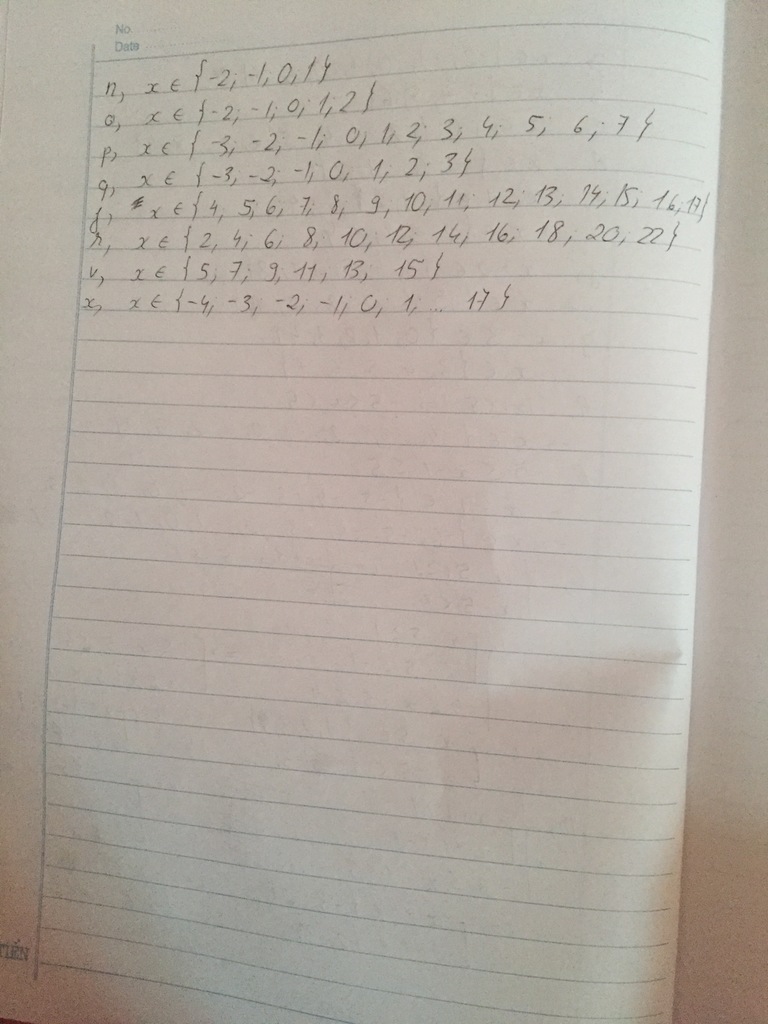 No
Date
n, x ∈ {-2; -1, 0, 1}
o, x ∈ {-2; -1; 0; 1, 2}
p, x ∈ {-3; -2; -1; 0, 1, 2; 3; 4; 5; 6; 7}
q, x ∈ {-3; -2; -1; 0, 1, 2; 3}
x ∈ {4, 5; 6, 7; 8, 9, 10, 11, 12; 13, 14, 15; 16, 17}
r, x ∈ {2, 4; 6; 8; 10; 12, 14, 16, 18, 20, 22}
v, x ∈ {5; 7; 9, 11, 13, 15}
x, x ∈ {-4; -3; -2; -1; 0, 1; ... 17}
TIẾN